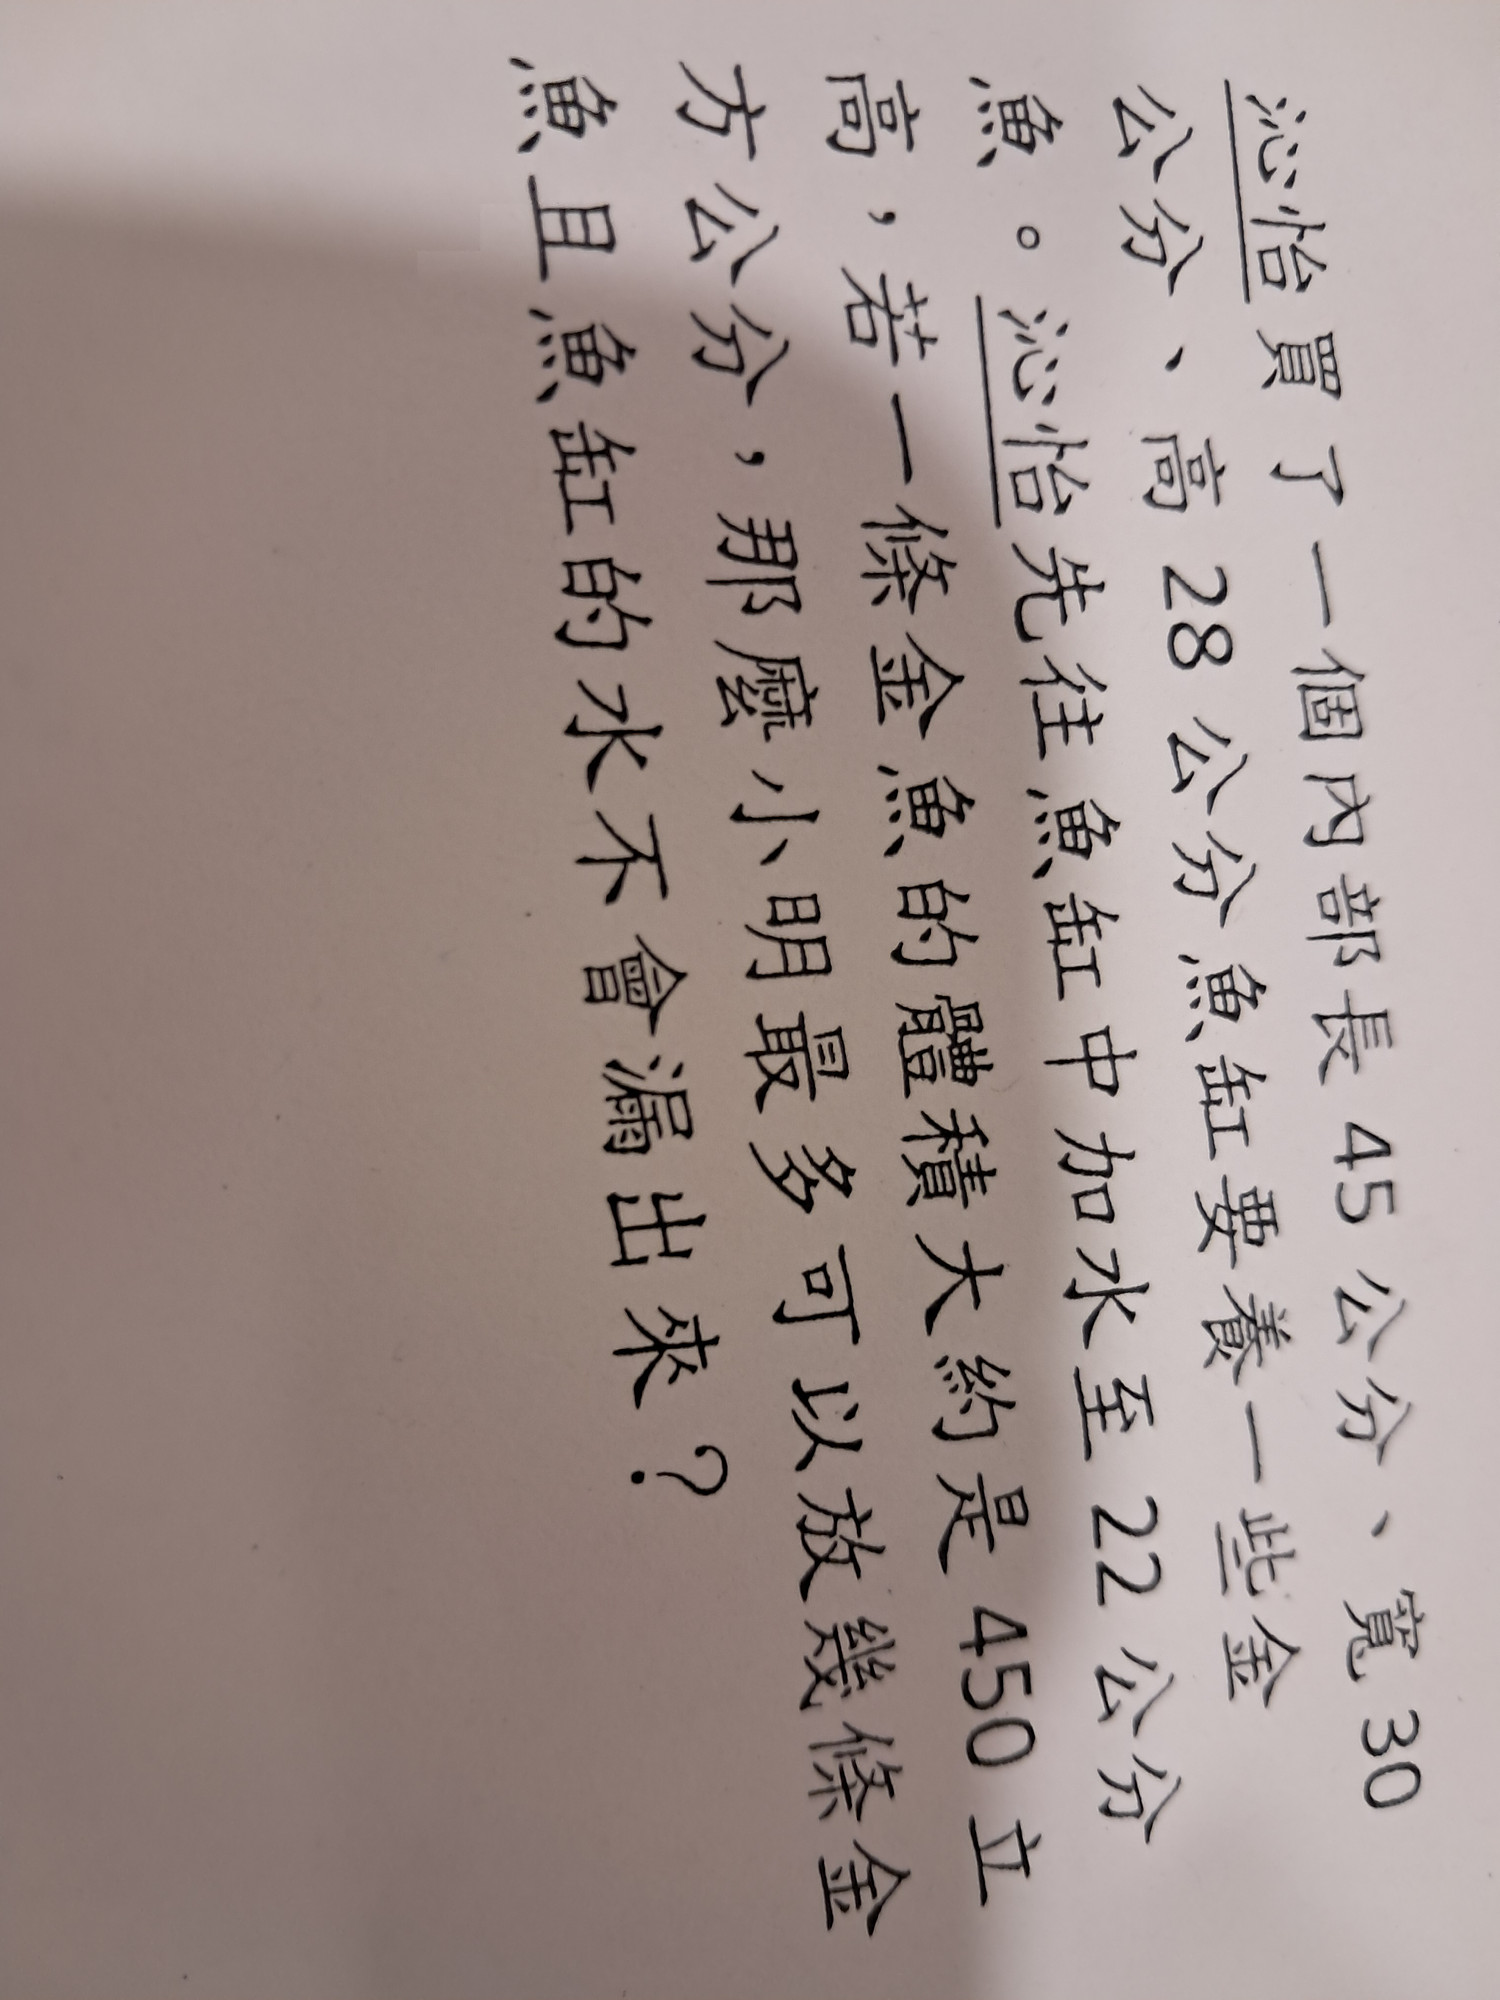 沁怡買了一個內部長 45 公分、寬 30
公分、高 28 公分魚缸要養一些金
魚。沁怡先往魚缸中加水至 22 公分
高，若一條金魚的體積大約是 450 立
方公分，那麼小明最多可以放幾條金
魚且魚缸的水不會漏出來？